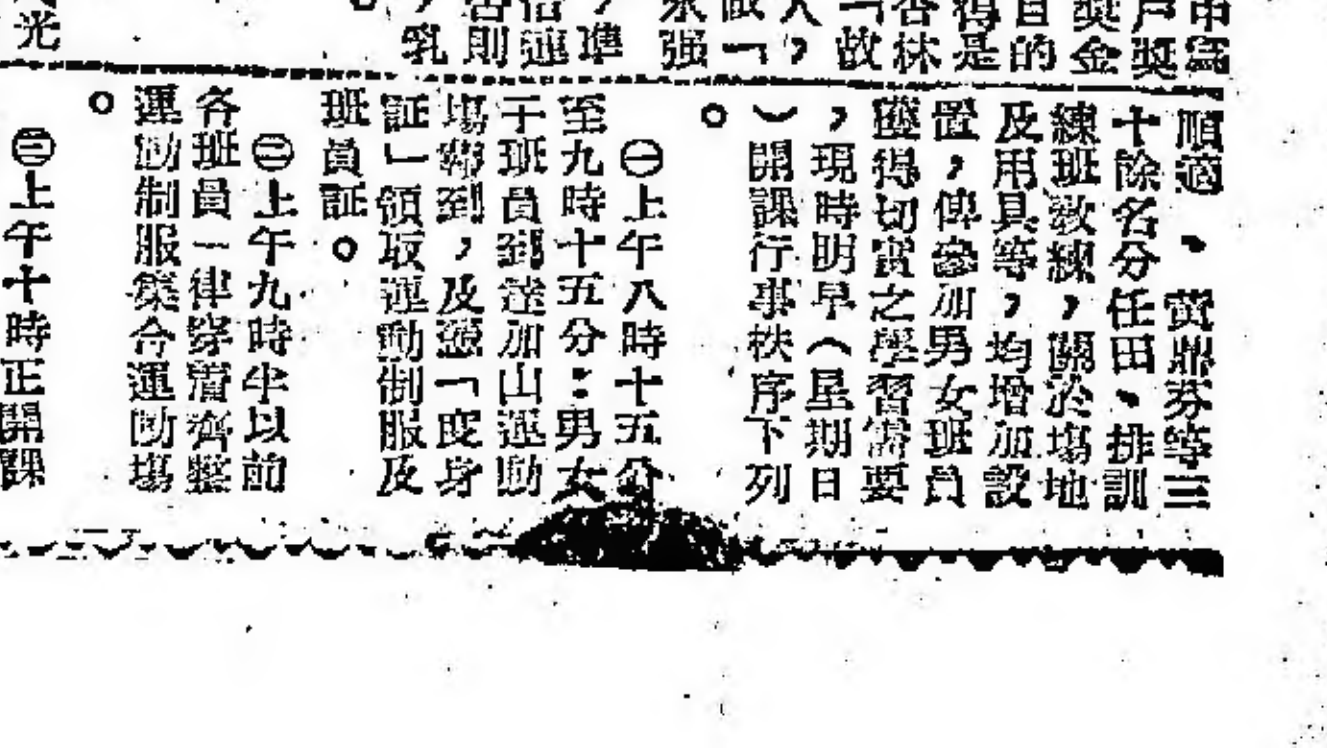 戶獎
獎金
目的
得是
杏林
「故
人，
永强
，準
否則
，乳
。
光
順適、黃鼎芬等三
十餘名分任田、排訓
練班教練，關於塲地
及用具等，均增加設
置，俾參加男女班員
獲得切實之學習需要
，現時明早（星期日
）開課行事秩序下列
。
㊀上午八時十五分
至九時十五分：男女
干班員到達加山運動
塲報到，及憑「度身
証」領取運動制服及
班員証。
㊁上午九時半以前
各班員一律穿着齊整
運動制服集合運動塲
。
㊂上午十時正開課